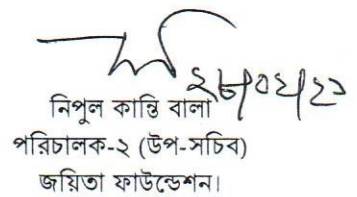 ২৮/০২/২১
নিপুল কান্তি বালা
পরিচালক-২ (উপ-সচিব)
জয়িতা ফাউন্ডেশন।